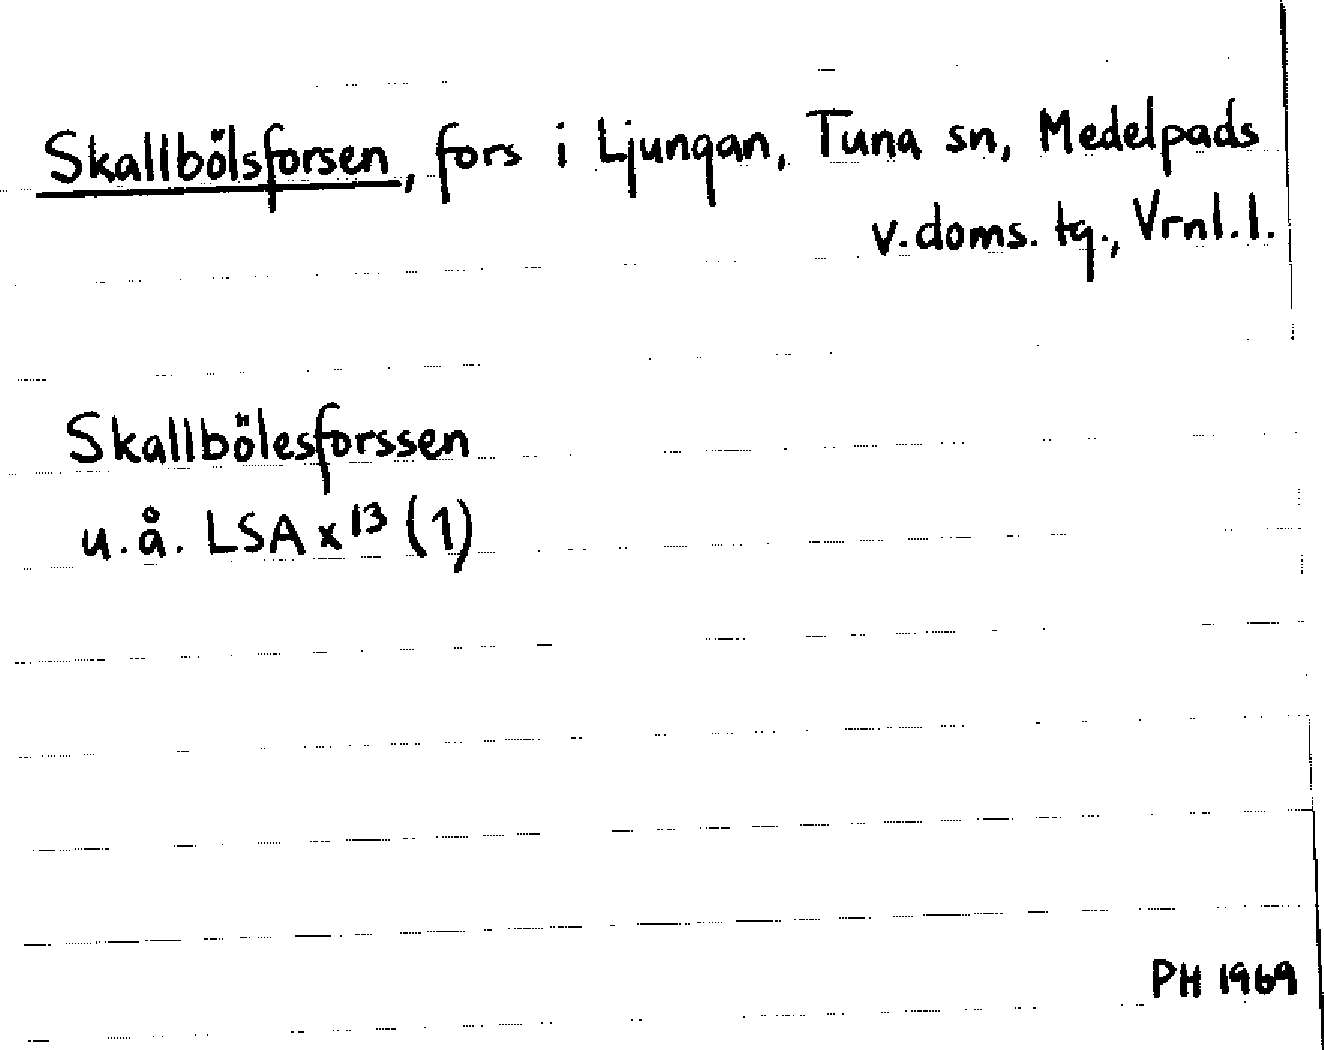 Skallbölsforsen, fors i Ljungan, Tuna sn, Medelpads
v. doms. tg., Vrnl. l.
Skallbölesforssen
u. å. LSA x¹³ (1)
PH 1969